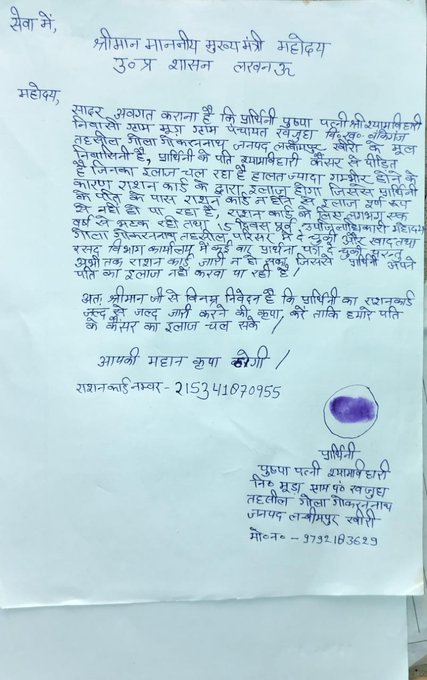 सेवा में,
श्रीमान माननीय मुख्यमंत्री महोदय
उ० प्र शासन लखनऊ
महोदय,
सादर अवगत कराना है कि प्रार्थिनी पुष्पा पत्नी श्री श्यामबिहारी
निवासी ग्राम मूड़ा ग्राम पंचायत रवजुहा वि० ख० बांकेगंज
तहसील गोला गोकरननाथ जनपद लखीमपुर खीरी के मूल
निवासिनी है, प्रार्थिनी के पति श्यामबिहारी कैंसर से पीड़ित
है जिनका इलाज चल रहा है हालत ज्यादा गम्भीर होने के
कारण राशन कार्ड के द्वारा इलाज होगा जिससे प्रार्थिनी
के पति के पास राशन कार्ड न होने से इलाज पूर्ण रूप
से नहीं हो पा रहा है, राशन कार्ड के लिए लगभग एक
वर्ष से भटक रही तथा 15 दिवस पूर्व उपजिलाधिकारी महोदय
गोला गोकरननाथ तहसील परिसर में दे चुकी और खाद्य तथा
रसद विभाग कार्यालय में कई बार प्रार्थना पत्र दे चुकी परन्तु
अभी तक राशन कार्ड जारी न हो सका जिससे प्रार्थिनी अपने
पति का इलाज नहीं करवा पा रही है।
अतः श्रीमान जी से विनम्र निवेदन है कि प्रार्थिनी का राशनकार्ड
जल्द से जल्द जारी करने की कृपा करें ताकि हमारे पति
के कैंसर का इलाज चल सके।
आपकी महान कृपा होगी।
राशनकार्ड नम्बर - 215341070955
प्रार्थिनी
पुष्पा पत्नी श्यामबिहारी
नि० मूड़ा ग्राम पं० रवजुहा
तहसील गोला गोकरननाथ
जनपद लखीमपुर खीरी
मो० न० - 9792183629